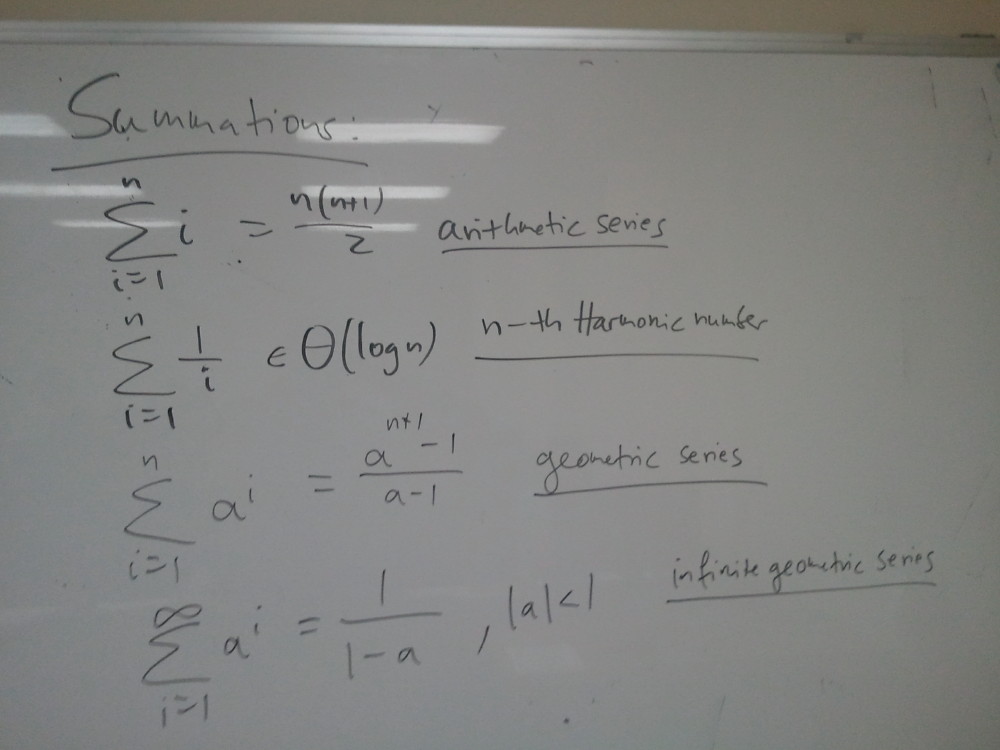 Summations:
∑_{i=1}^{n} i = n(n+1)/2 arithmetic series
∑_{i=1}^{n} 1/i ∈ Θ(log n) n-th Harmonic number
∑_{i=1}^{n} a^i = (a^{n+1} - 1)/(a - 1) geometric series
∑_{i=1}^{∞} a^i = 1/(1 - a) , |a| < 1 infinite geometric series